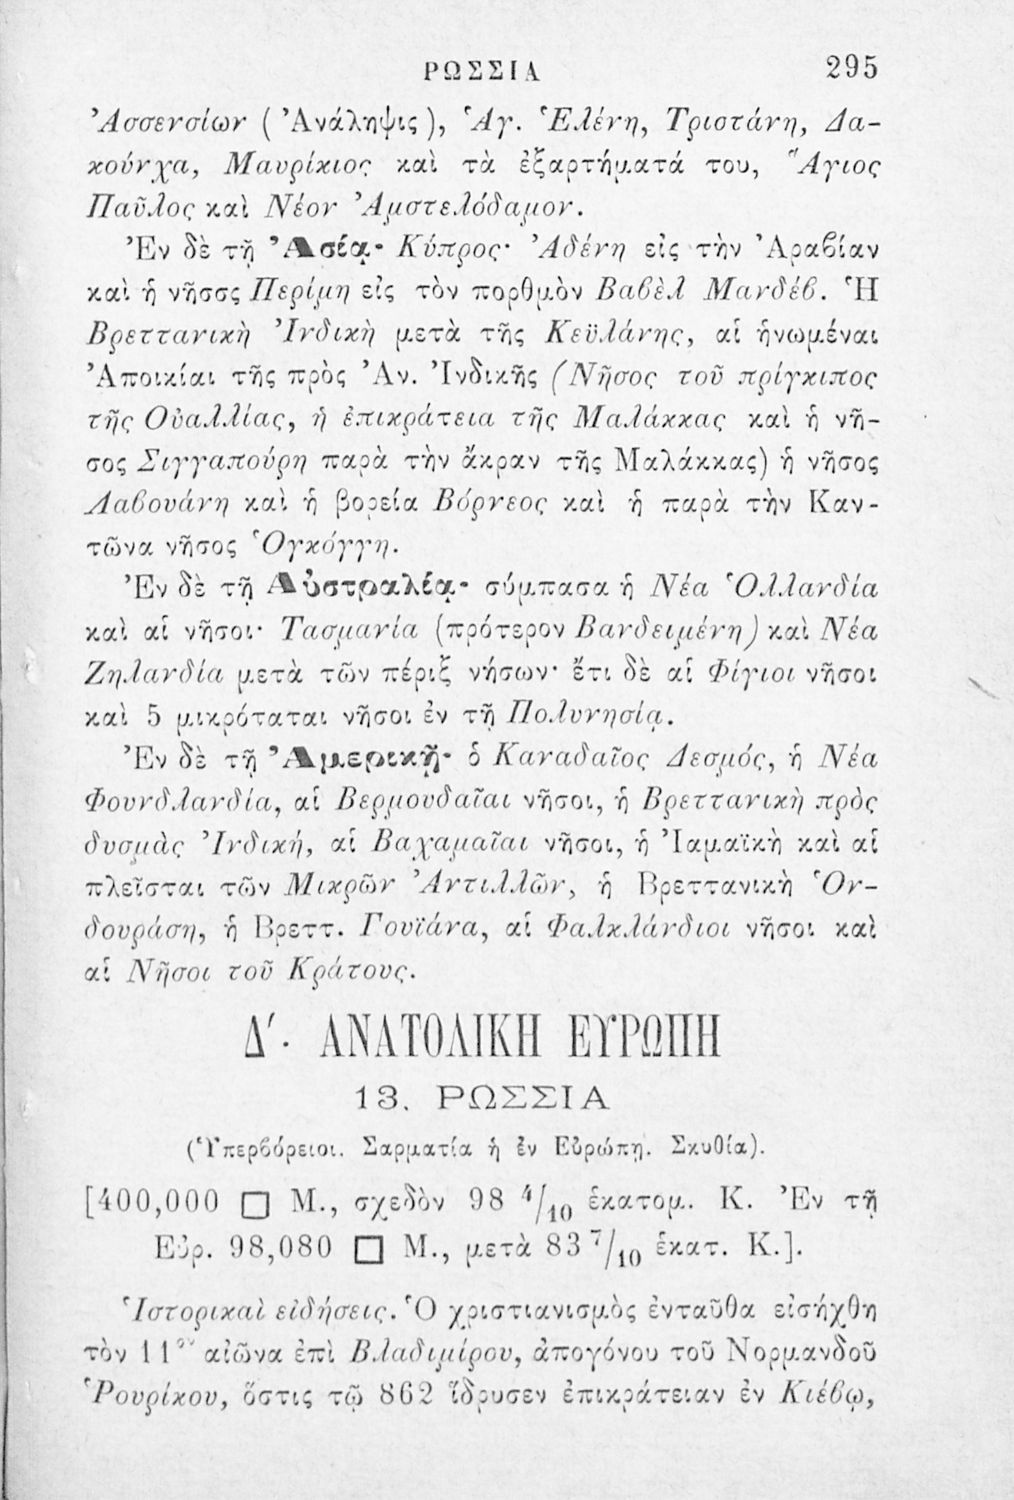 ΡΩΣΣΙΑ 295
Ἀσσενσίων (Ἀνάληψις), Ἁγ. Ἑλένη, Τριστάνη, Δα-
κούνχα, Μαυρίκιος καὶ τὰ ἐξαρτήματά του, Ἅγιος
Παῦλος καὶ Νέον Ἀμστελόδαμον.
Ἐν δὲ τῇ Ἀσίᾳ· Κύπρος· Ἀδένη εἰς τὴν Ἀραβίαν
καὶ ἡ νῆσσς Περίμη εἰς τὸν πορθμὸν Βαβὲλ Μανδέβ. Ἡ
Βρεττανικὴ Ἰνδικὴ μετὰ τῆς Κεϋλάνης, αἱ ἡνωμέναι
Ἀποικίαι τῆς πρὸς Ἀν. Ἰνδικῆς (Νῆσος τοῦ πρίγκιπος
τῆς Οὐαλλίας, ἡ ἐπικράτεια τῆς Μαλάκκας καὶ ἡ νῆ-
σος Σιγγαπούρη παρὰ τὴν ἄκραν τῆς Μαλάκκας) ἡ νῆσος
Λαβουάνη καὶ ἡ βορεία Βόρνεος καὶ ἡ παρὰ τὴν Καν-
τῶνα νῆσος Ὁγκόγγη.
Ἐν δὲ τῇ Αὐστραλέᾳ· σύμπασα ἡ Νέα Ὁλλανδία
καὶ αἱ νῆσοι· Τασμανία (πρότερον Βανδειμένη) καὶ Νέα
Ζηλανδία μετὰ τῶν πέριξ νήσων· ἔτι δὲ αἱ Φίγιοι νῆσοι
καὶ 5 μικρόταται νῆσοι ἐν τῇ Πολυνησίᾳ.
Ἐν δὲ τῇ Ἀμερικῇ· ὁ Καναδαῖος Δεσμός, ἡ Νέα
Φουνδλανδία, αἱ Βερμουδαῖαι νῆσοι, ἡ Βρεττανικὴ πρὸς
δυσμὰς Ἰνδική, αἱ Βαχαμαῖαι νῆσοι, ἡ Ἰαμαϊκὴ καὶ αἱ
πλεῖσται τῶν Μικρῶν Ἀντιλλῶν, ἡ Βρεττανικὴ Ὁν-
δουράση, ἡ Βρεττ. Γουϊάνα, αἱ Φαλκλάνδιοι νῆσοι καὶ
αἱ Νῆσοι τοῦ Κράτους.
Δ'. ΑΝΑΤΟΛΙΚΗ ΕΥΡΩΠΗ
13. ΡΩΣΣΙΑ
(Ὑπερβόρειοι. Σαρματία ἡ ἐν Εὐρώπῃ. Σκυθία).
[400,000 □ Μ., σχεδὸν 98 4/10 ἑκατομ. Κ. Ἐν τῇ
Εὐρ. 98,080 □ Μ., μετὰ 83 7/10 ἑκατ. Κ.].
Ἱστορικαὶ εἰδήσεις. Ὁ χριστιανισμὸς ἐνταῦθα εἰσήχθη
τὸν 11ον αἰῶνα ἐπὶ Βλαδιμίρου, ἀπογόνου τοῦ Νορμανδοῦ
Ῥουρίκου, ὅστις τῷ 862 ἵδρυσεν ἐπικράτειαν ἐν Κιέβῳ,